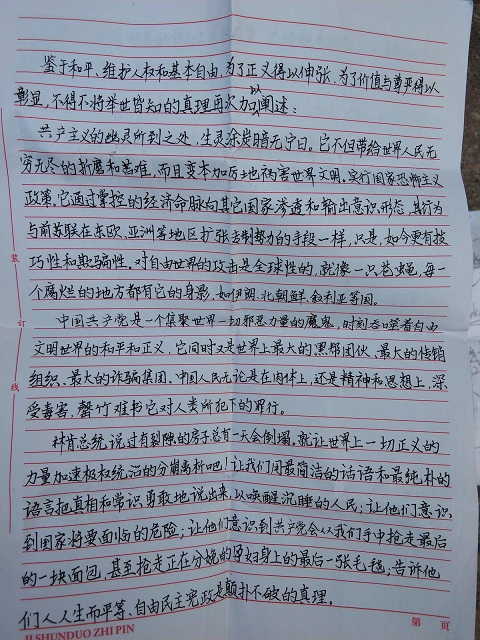 鉴于和平、维护人权和基本自由,为了正义得以伸张、为了价值与尊严得以
彰显,不得不将举世皆知的真理再次加以阐述:
共产主义的幽灵所到之处,生灵涂炭暗无宁日。它不但带给世界人民无
穷无尽的折磨和苦难,而且变本加厉地祸害世界文明,实行国家恐怖主义
政策。它通过掌控的经济命脉向其它国家渗透和输出意识形态,其行为
与前苏联在东欧、亚洲等地区扩张专制势力的手段一样,只是,如今更有技
巧性和欺骗性。对自由世界的攻击是全球性的,就像一只苍蝇,每一
个腐烂的地方都有它的身影,如伊朗、北朝鲜、叙利亚等国。
中国共产党是一个集聚世界一切邪恶力量的魔鬼,时刻吞噬着自由
文明世界的和平和正义,它同时又是世界上最大的黑帮团伙、最大的传销
组织、最大的诈骗集团。中国人民无论是在肉体上,还是精神和思想上,深
受毒害,罄竹难书它对人类所犯下的罪行。
林肯总统说过有裂隙的房子总有一天会倒塌。就让世界上一切正义的
力量加速极权统治的分崩离析吧!让我们用最简洁的话语和最纯朴的
语言把真相和常识勇敢地说出来,以唤醒沉睡的人民;让他们意识
到国家将要面临的危险;让他们意识到共产党会从我们手中抢走最后
的一块面包,甚至抢走正在分娩的孕妇身上的最后一张毛毯;告诉他
们人人生而平等、自由民主宪政是颠扑不破的真理。
装
订
线
JI SHUNDUO ZHI PIN
第 页